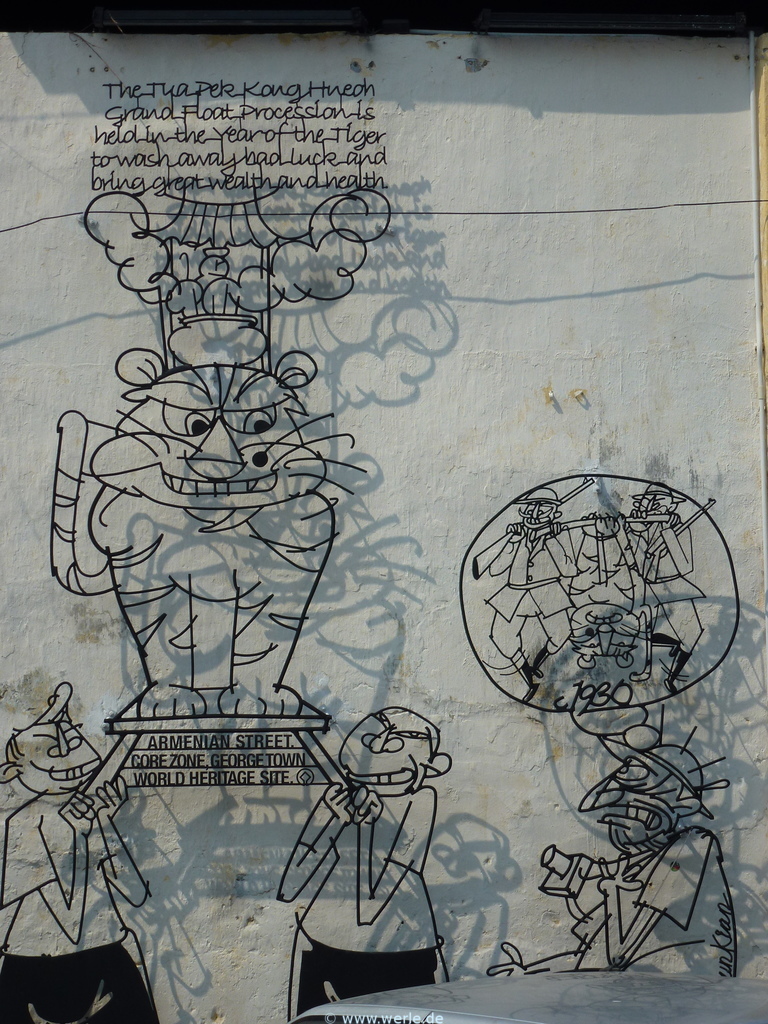 The Tua Pek Kong Hneoh
Grand Float Procession is
held in the Year of the Tiger
to wash away bad luck and
bring great wealth and health.
ARMENIAN STREET.
CORE ZONE, GEORGETOWN
WORLD HERITAGE SITE.
c1930
© www.werle.de